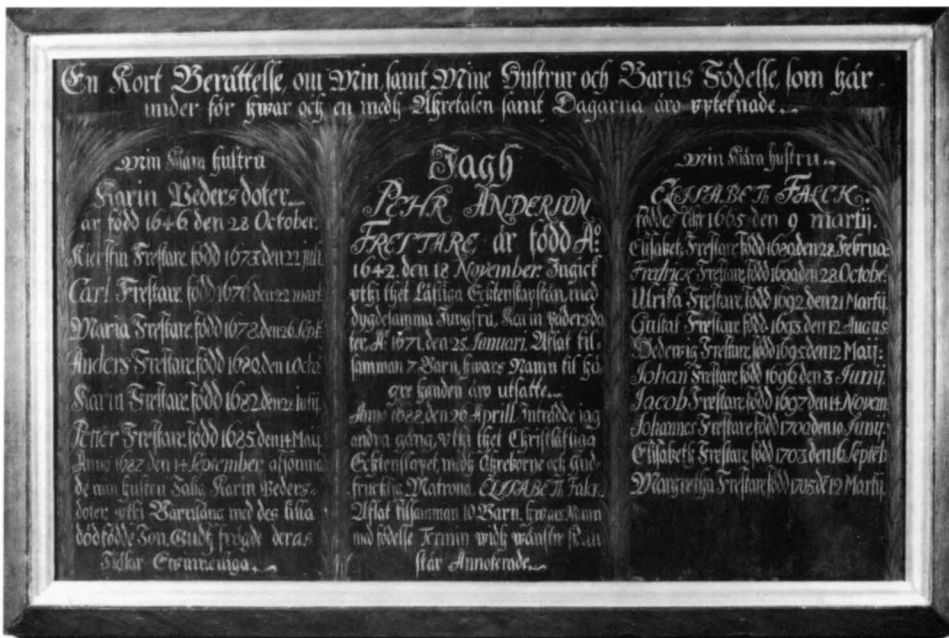 En Kort Berättelse, om Min, samt Mine Hustrur och Barns Födelse, som här
under för hwar och en medh Åhretalen samt Dagarna äro upteknade
Min Kiära hustru
Karin Pedersdoter
är född 1646 den 28 October
Kierstin Frestare född 1673 den 22
Carl Frestare född 1676 den 22 mart
Maria Frestare född 1678 den 26
Anders Frestare född 1680 den 1 Octo
Karin Frestare född 1682 den
Petter Frestare född 1685 den 14 Maij
Anno 1687 den 14 September afsomna
de min hustru Salig Karin Peders
doter, uthi Barnsäng med des lilla
dödfödde Son, Gudh frögde deras
Siälar
Jagh
PEHR ANDERSON
FRESTARE är född A:o
1642 den 18 November. Ingick
uthi thet Låfliga Echtenskapstån, med
dygdesamma Jungfru, Karin Pedersdo
ter, A:o 1671 den 25 Januari. Aflat til-
samman 7 Barn, hwars Namn til hö
gre handen äro utsatte
Anno 1688 den 26 Aprill Inträdde jag
andra gång, uthi thet Christeliga
Echtenskapet, medh Ähreborne och Gud-
fruchtig Matrona ELISABETh Falck
Aflat tilsamman 10 Barn, hwars Namn
med födelse Termin widh wänstre
Annoterade
Min Kiära hustru
ELISABETh FALCK
föddes Åhr 1665 den 9 martij.
Elisabeth Frestare född 1689 den 28 Februa:
Fredrick Frestare född 1690 den 28 Octobe
Ulrika Frestare född 1692 den 21 Martij
Gustaf Frestare född 1693 den 12 Augus
Hedewig Frestare född 1695 den 12 Maij:
Johan Frestare född 1696 den 3 Junij
Jacob Frestare född 1697 den 14 Novem
Johannes Frestare född 1700 den 10 Junij
Elisabeth Frestare född 1703 den 16 Septeb
Margretha Frestare född 1705 d 12 Martij